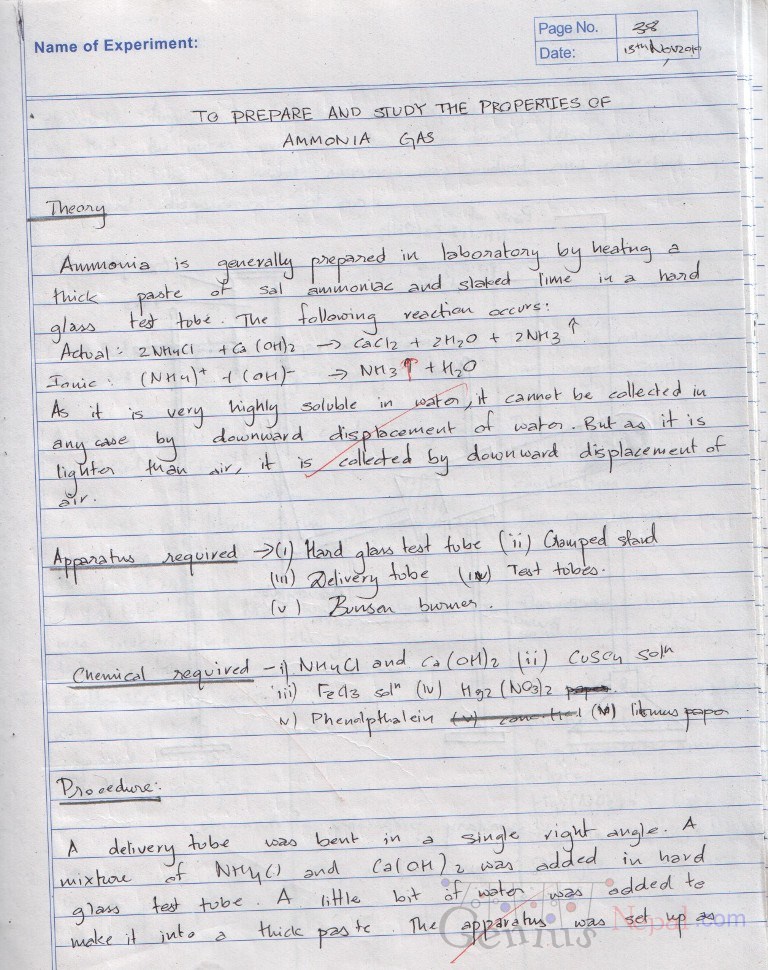 Name of Experiment:
Page No. 38
Date: 15th Nov 2010
TO PREPARE AND STUDY THE PROPERTIES OF
AMMONIA GAS
Theory
Ammonia is generally prepared in laboratory by heating a
thick paste of sal ammoniac and slaked lime in a hard
glass test tube. The following reaction occurs:
Actual: 2NH4Cl + Ca(OH)2 → CaCl2 + 2H2O + 2NH3 ↑
Ionic: (NH4)+ + (OH)- → NH3 ↑ + H2O
As it is very highly soluble in water, it cannot be collected in
any case by downward displacement of water. But as it is
lighter than air, it is collected by downward displacement of
air.
Apparatus required → (i) Hard glass test tube (ii) Clamped stand
(iii) Delivery tube (iv) Test tubes.
(v) Bunsen burner.
Chemical required - i) NH4Cl and Ca(OH)2 (ii) CuSO4 solⁿ
iii) FeCl3 solⁿ (iv) Hg2(NO3)2
v) Phenolpthalein (vi) litmus paper
Procedure:
A delivery tube was bent in a single right angle. A
mixture of NH4Cl and Ca(OH)2 was added in hard
glass test tube. A little bit of water was added to
make it into a thick paste. The apparatus was set up as
Genius Nepal.com